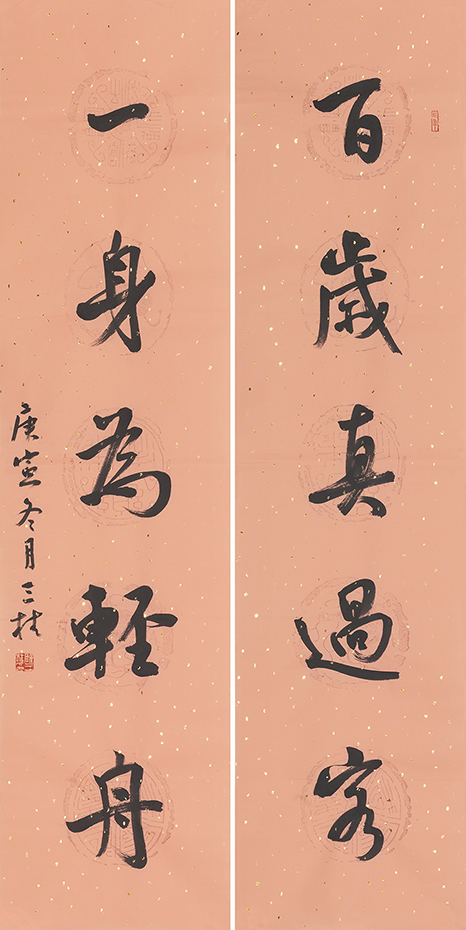 百歲真過客
一身為輕舟
庚寅冬月三村